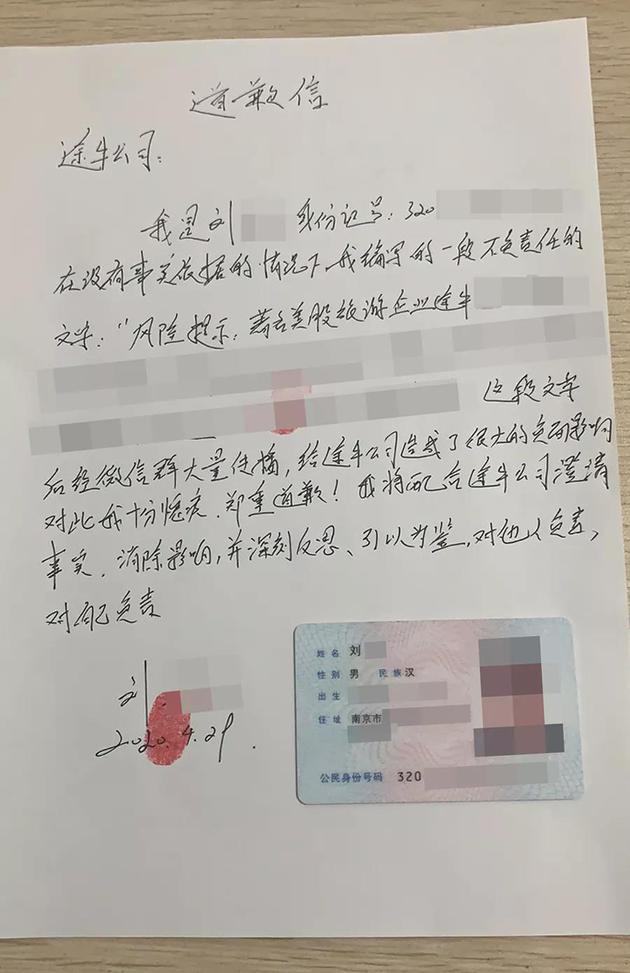 道歉信
途牛公司:
我是刘 身份证号:320
在没有事实依据的情况下,我编写的一段不负责任的
文字:"风险提示:著名美股旅游企业途牛
这段文字
后经微信群大量传播,给途牛公司造成了很大的负面影响
对此我十分愧疚.郑重道歉!我将配合途牛公司澄清
事实.消除影响,并深刻反思、引以为鉴,对他人负责,
对自己负责
刘
2020.4.29.
姓名 刘
性别 男 民族 汉
出生
住址 南京市
公民身份号码 320